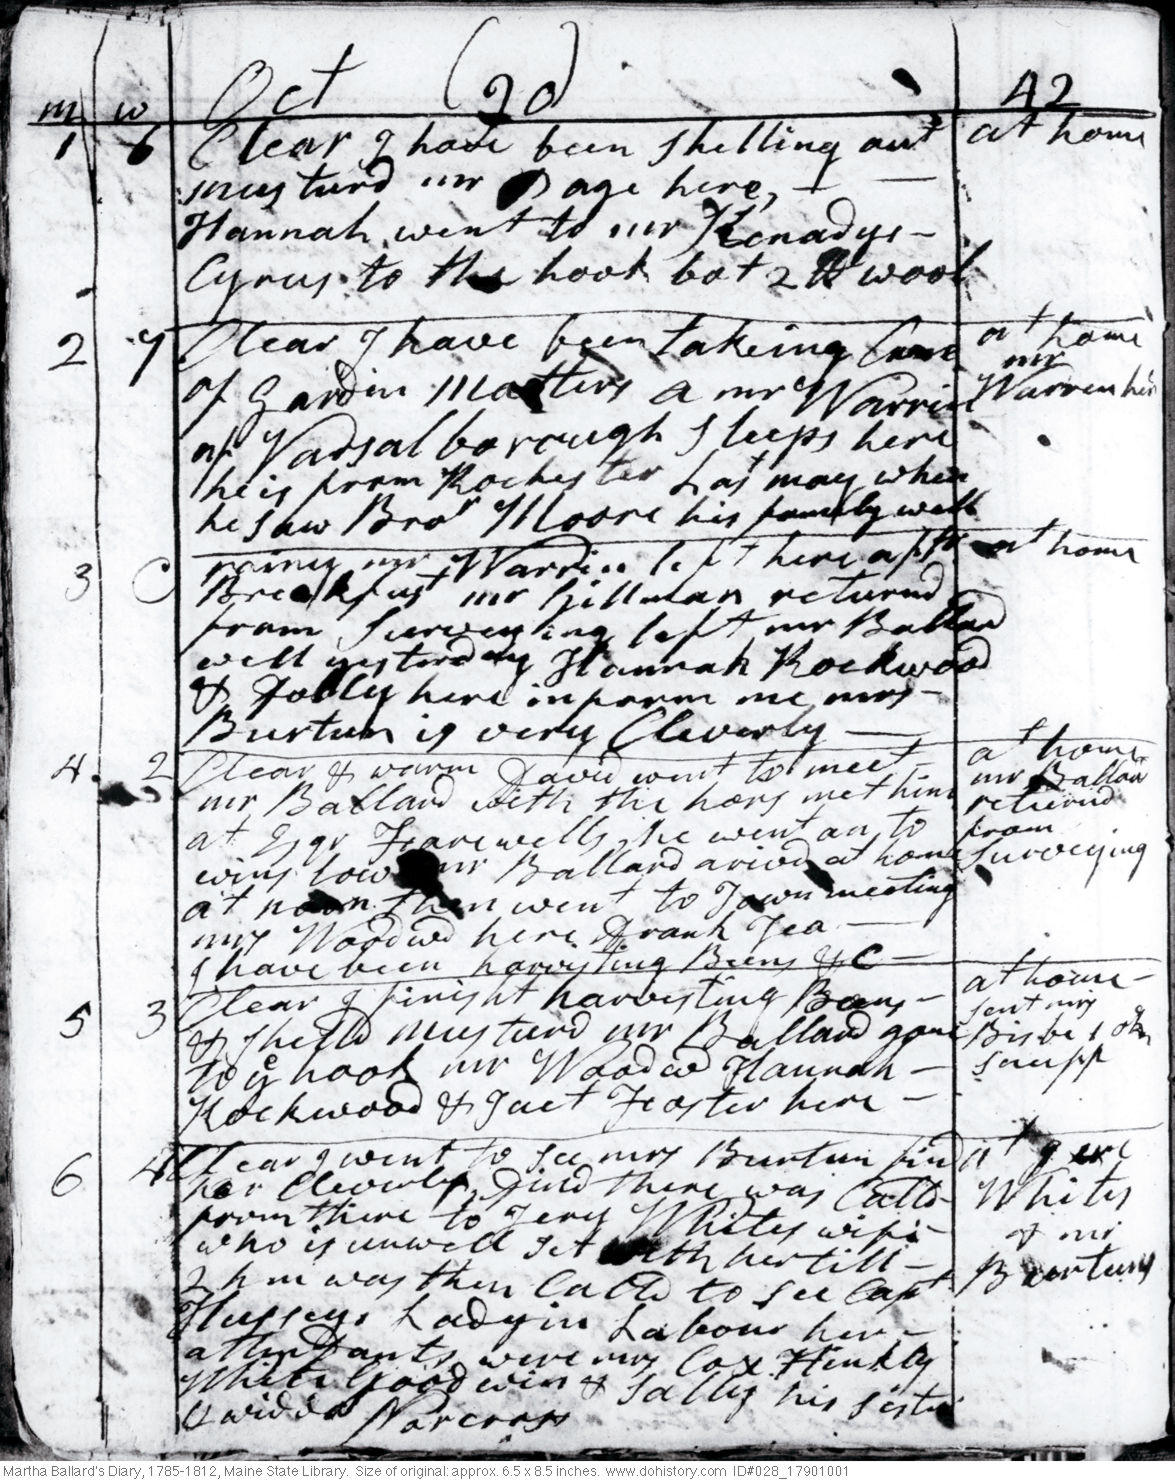 Oct (90) 42
m w
1 6 Clear I have been shelling out at home
musturd mr Page here,
Hannah went to mr Kenadys
Cyrus to the hook bot 2 lb wool
2 7 Clear I have been takeing Care at home
of gardin Matters a mr Warrin mr Warren here
of Varsalborough Sleeps here
he is from Rochester Last may when
he saw Bror Moore his family well
3 C rainy mr Warrin left here aftr at home
Breakfust mr Gillman returnd
from Surveying left mr Ballard
well yesterday Hannah Rockwood
& Dolly here inform me mrs
Burtun is very Cleverly
4 2 Clear & warm David went to meet at home
mr Ballard with the hors met him mr Ballard
at Esqr Fearewells, he went on to returnd
winslow mr Ballard arivd at home from Surveying
at noon then went to Town meeting
mrs Woodwd here Drank Tea
I have been harvisting Beens &C
5 3 Clear I finisht harvisting Beens at home
& shelld musturd mr Ballard gone sent mrs
to ye hook mr Woodwd Hannah Bisbe 1 oz
Rockwood & Jact Foster here snuff
6 4 Clear I went to see mrs Burtun find at Jere
her Cleverly, Dind there was Calld Whites
from there to Jery Whites wife of mr
who is unwell Set with her till Burtuns
2 h m was then Calld to see Capt
Husseys Lady in Labour her
attendants were mrs Cox Hinkly
White Goodwin & Sally his sister
& widdo Norcross
Martha Ballard's Diary, 1785-1812, Maine State Library. Size of original: approx. 6.5 x 8.5 inches. www.dohistory.com ID#028_17901001